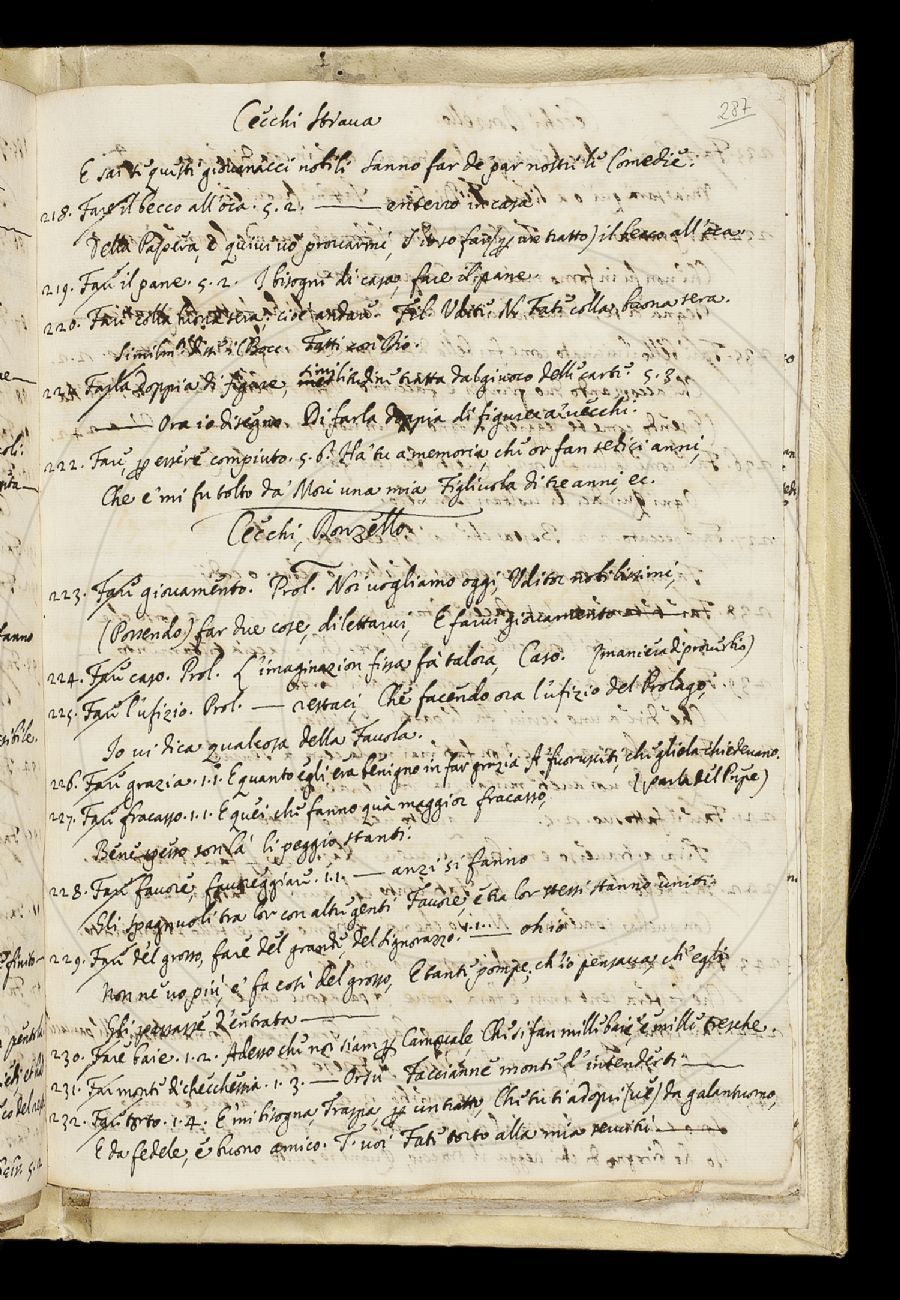 287
Cecchi Strava
E sai tu questi giovanacci nobili Sanno far de par nostri le Comedie.
218. Fare il becco all'oca. 5. 2. —— entrerò in casa
Della Papera, e quivi vo provarmi, S'io so far (per un tratto) il becco all'oca
219. Fare il pane. 5. 2. I bisogni di casa, fare il pane.
220. Fare colla buona sera: cioè andare. Fil. Udite. N. Fate colla buona sera.
Similm. disse il Bocc. Fatti con Dio.
221. Farla doppia di figure, similitudine tratta dal giuoco delle carte. 5. 3.
—— Ora io disegno Di farla doppia di figure a' vecchi.
222. Fare, per essere compiuto. 5. 6. Ha' tu a memoria, che or fan sedici anni,
Che e' mi fu tolto da' Mori una mia Figliuola di tre anni, ec.
Cecchi, Donzello.
223. Fare giovamento. Prol. Noi vogliamo oggi, Uditor nobilissimi,
(Possendo) far due cose, dilettarvi, E farvi giovamento
224. Fare caso. Prol. L'imaginazion fissa fa talora, Caso. (maniera di proverbio)
225. Fare l'ufizio. Prol. — restaci, Che facendo ora l'ufizio del Prolago,
Io vi dica qualcosa della Favola.
226. Fare grazia. 1. 1. E quanto egli era benigno in far grazia A' fuorusciti, che gliela chiedevano.
(parla del Papa)
227. Fare fracasso. 1. 1. E quei che fanno quà maggior fracasso,
Bene spesso son là li peggio stanti.
228. Fare favore, favoreggiare. 1. 1. — anzi si fanno
Gli Spagnuoli tra lor con altre genti Favore, e tra lor stessi stanno uniti.
229. Fare del grosso, fare del grande, del Signorazzo. 1. 1. — oh io
Non ne vo più, e' fa così del grosso, E tante pompe, ch'io pensava, ch'egli
Gli passasse l'entrata ——
230. Fare baie. 1. 2. Adesso che noi siam per Carnovale, Che si fan mille baie, e mille tresche.
231. Fare monte di checchessia. 1. 3. — Orsù Facciamne monte l'intendesti ——
232. Fare torto. 1. 4. E' mi bisogna, Trappa, per un tratto, Che tu ti adopri (ve') da galantuomo,
E da fedele, e buono amico. T. voi Fate torto alla mia servitù.